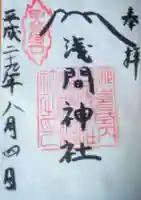 奉拝
浅間神社
平成二十九年八月四日